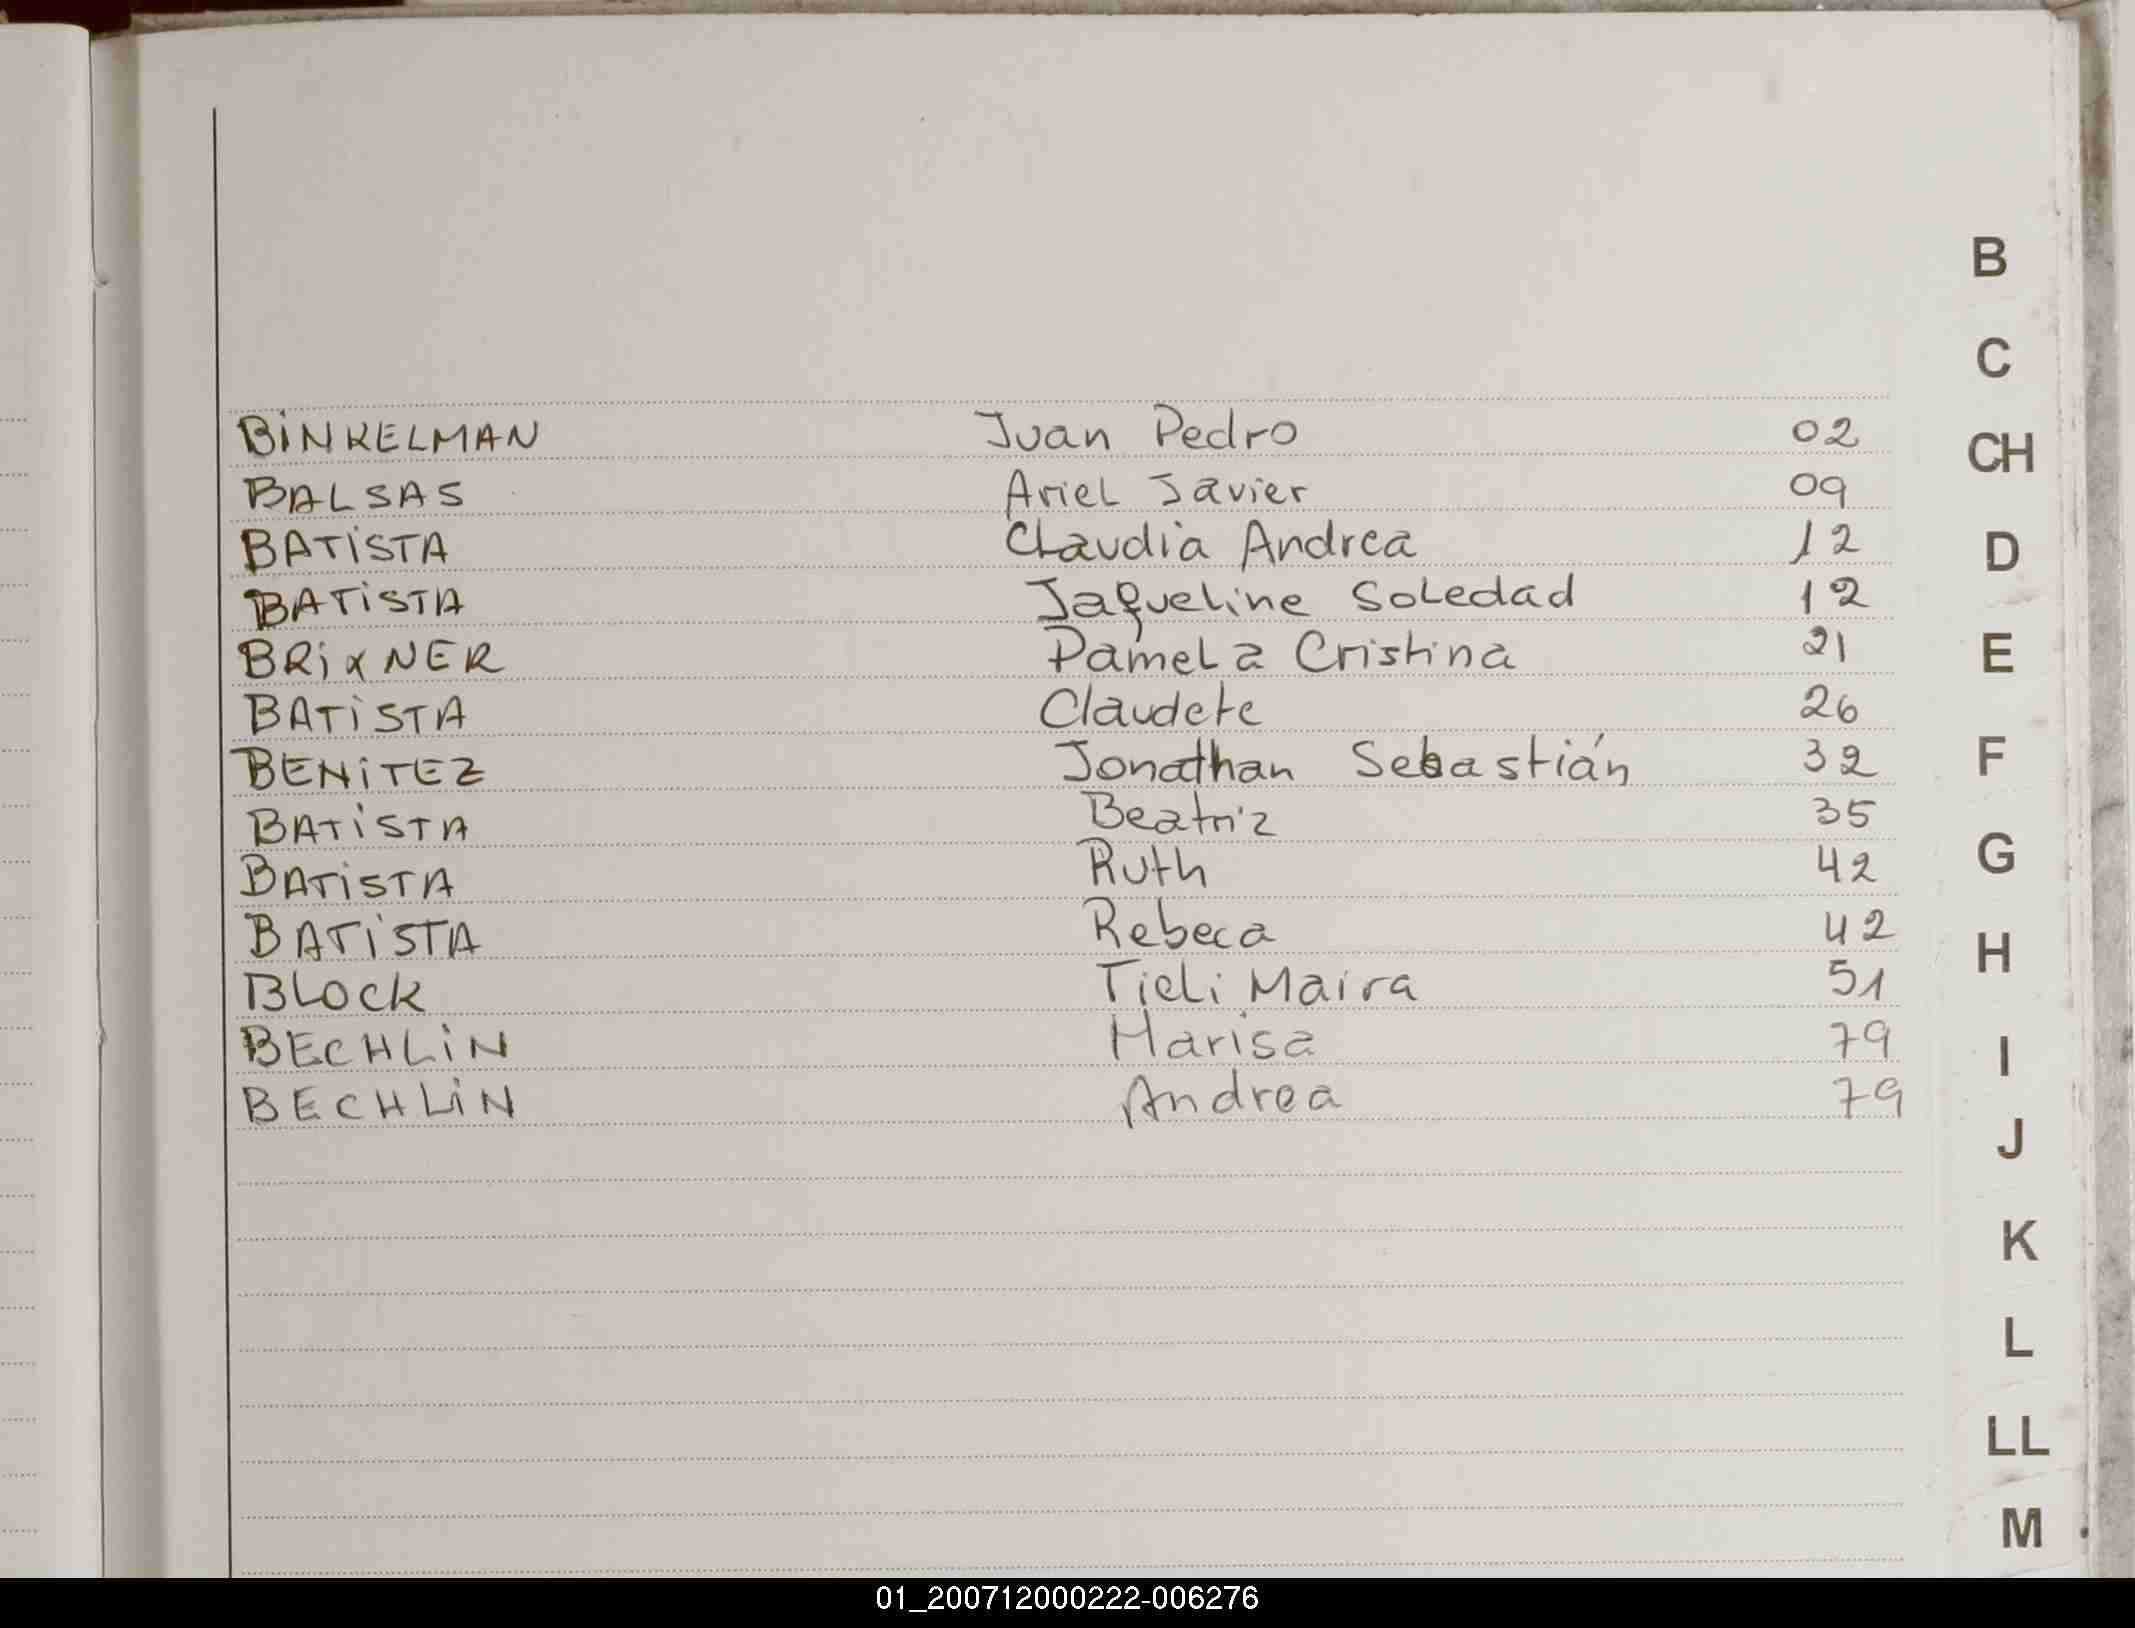 BINKELMAN Juan Pedro 02
BALSAS Ariel Javier 09
BATISTA Claudia Andrea 12
BATISTA Jaqueline Soledad 12
BRIXNER Pamela Cristina 21
BATISTA Claudete 26
BENITEZ Jonathan Sebastián 32
BATISTA Beatriz 35
BATISTA Ruth 42
BATISTA Rebeca 42
BLOCK Tieli Maira 51
BECHLIN Marisa 79
BECHLIN Andrea 79
B
C
CH
D
E
F
G
H
I
J
K
L
LL
M
01_200712000222-006276